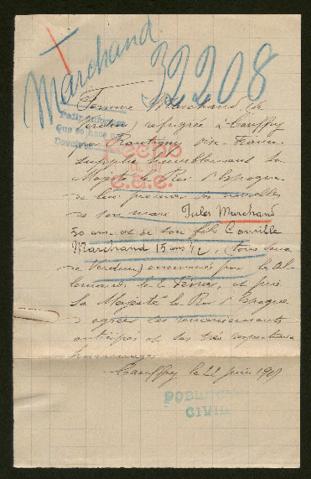 Marchand
32208
Femme Marchand (de
Verdun) réfugiée à Cauffry
par Rantigny Oise France
supplie humblement Sa
Majesté le Roi d'Espagne
de leur procurer des nouvelles
de son mari Jules Marchand
50 ans et de son fils Camille
Marchand 15 ans 1/2, (tous deux
de Verdun) emmenés par les Al-
lemands le février, et prie
Sa Majesté le Roi d'Espagne
d'agréer les remerciements
anticipés et les très respectueux
hommages.
Cauffry le 22 juin 191
POBL
CIVIL